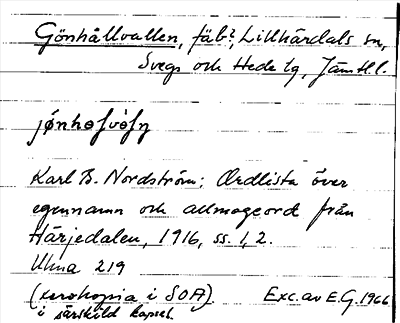 Gönhållvallen, fäb?, Lillhärdals sn,
Svegs och Hede tg, Jämtl.l.
Karl B. Nordström: Ordlista över
egennamn och allmogeord från
Härjedalen, 1916, ss. 1, 2.
Ulma 219
(xerokopia i SOA). Exc. av E.G. 1966
i särskild kapsel.